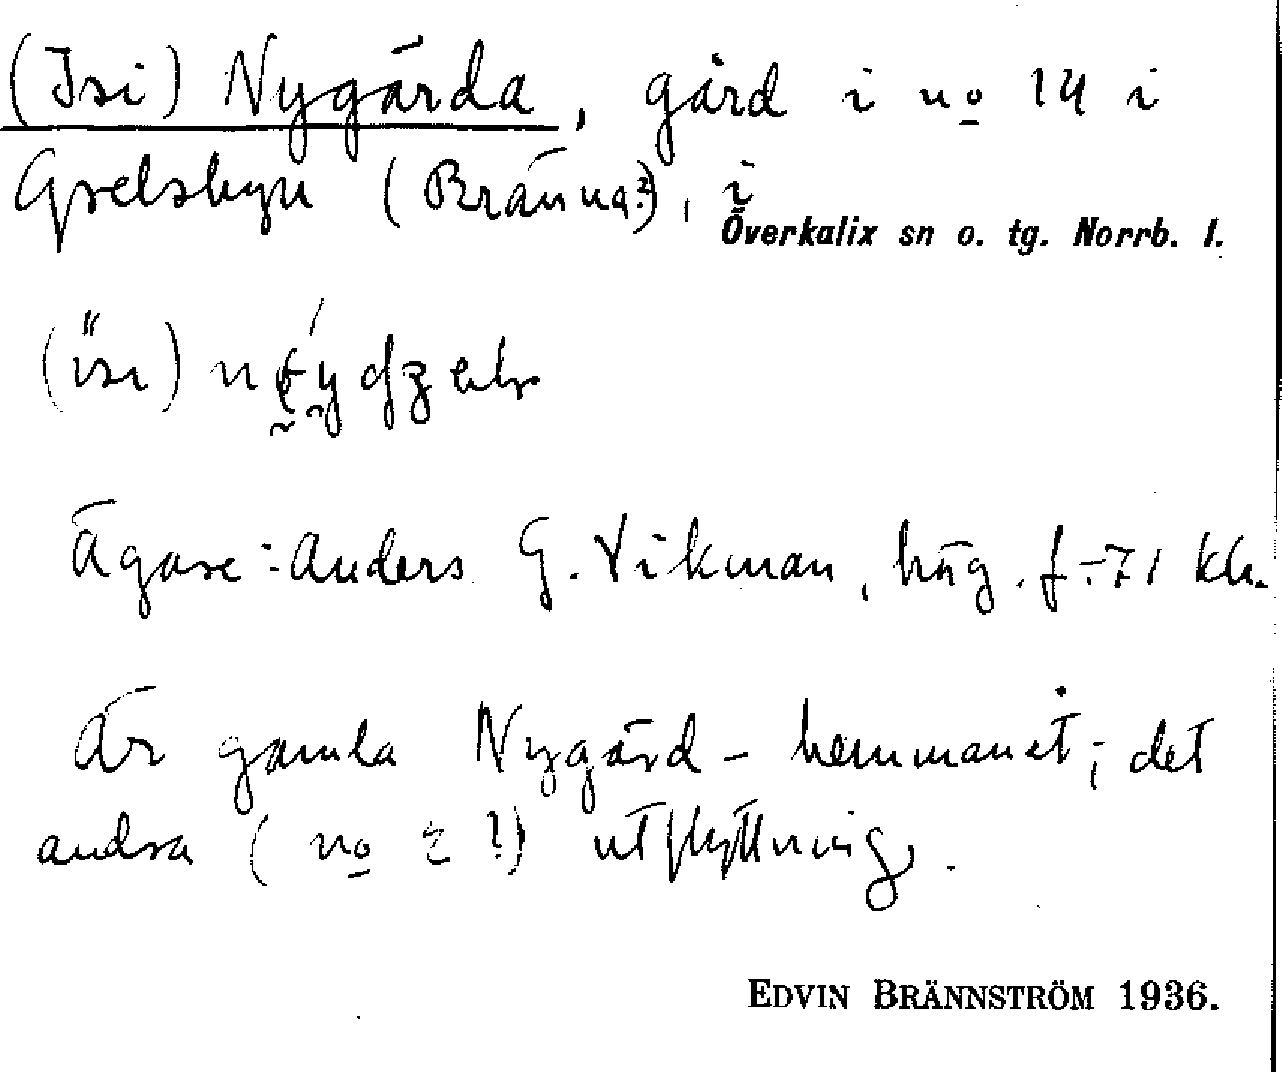 (Isi) Nygårda, gård i no 14 i
Grelsbyn (Bränna?), i
Överkalix sn o. tg. Norrb. l.
Ägare: Anders G. Vikman, häg. f. -71 kk.
Är gamla Nygård-hemmanet; det
andra (no 2?) utflyttning.
EDVIN BRÄNNSTRÖM 1936.